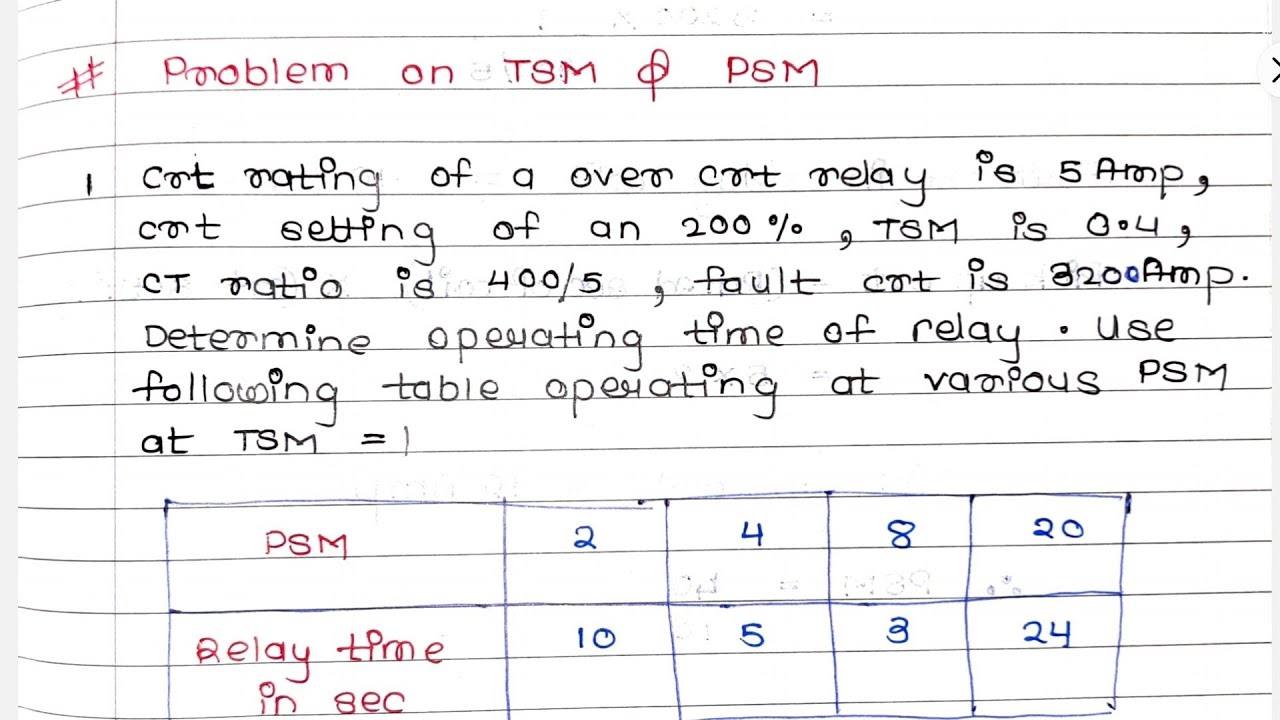 # Problem on TSM & PSM
1 Crt rating of a over crt relay is 5 Amp,
crt setting of an 200 % , TSM is 0.4,
CT ratio is 400/5 , fault crt is 3200Amp.
Determine operating time of relay . Use
following table operating at various PSM
at TSM = 1
PSM 2 4 8 20
Relay time 10 5 3 24
in sec